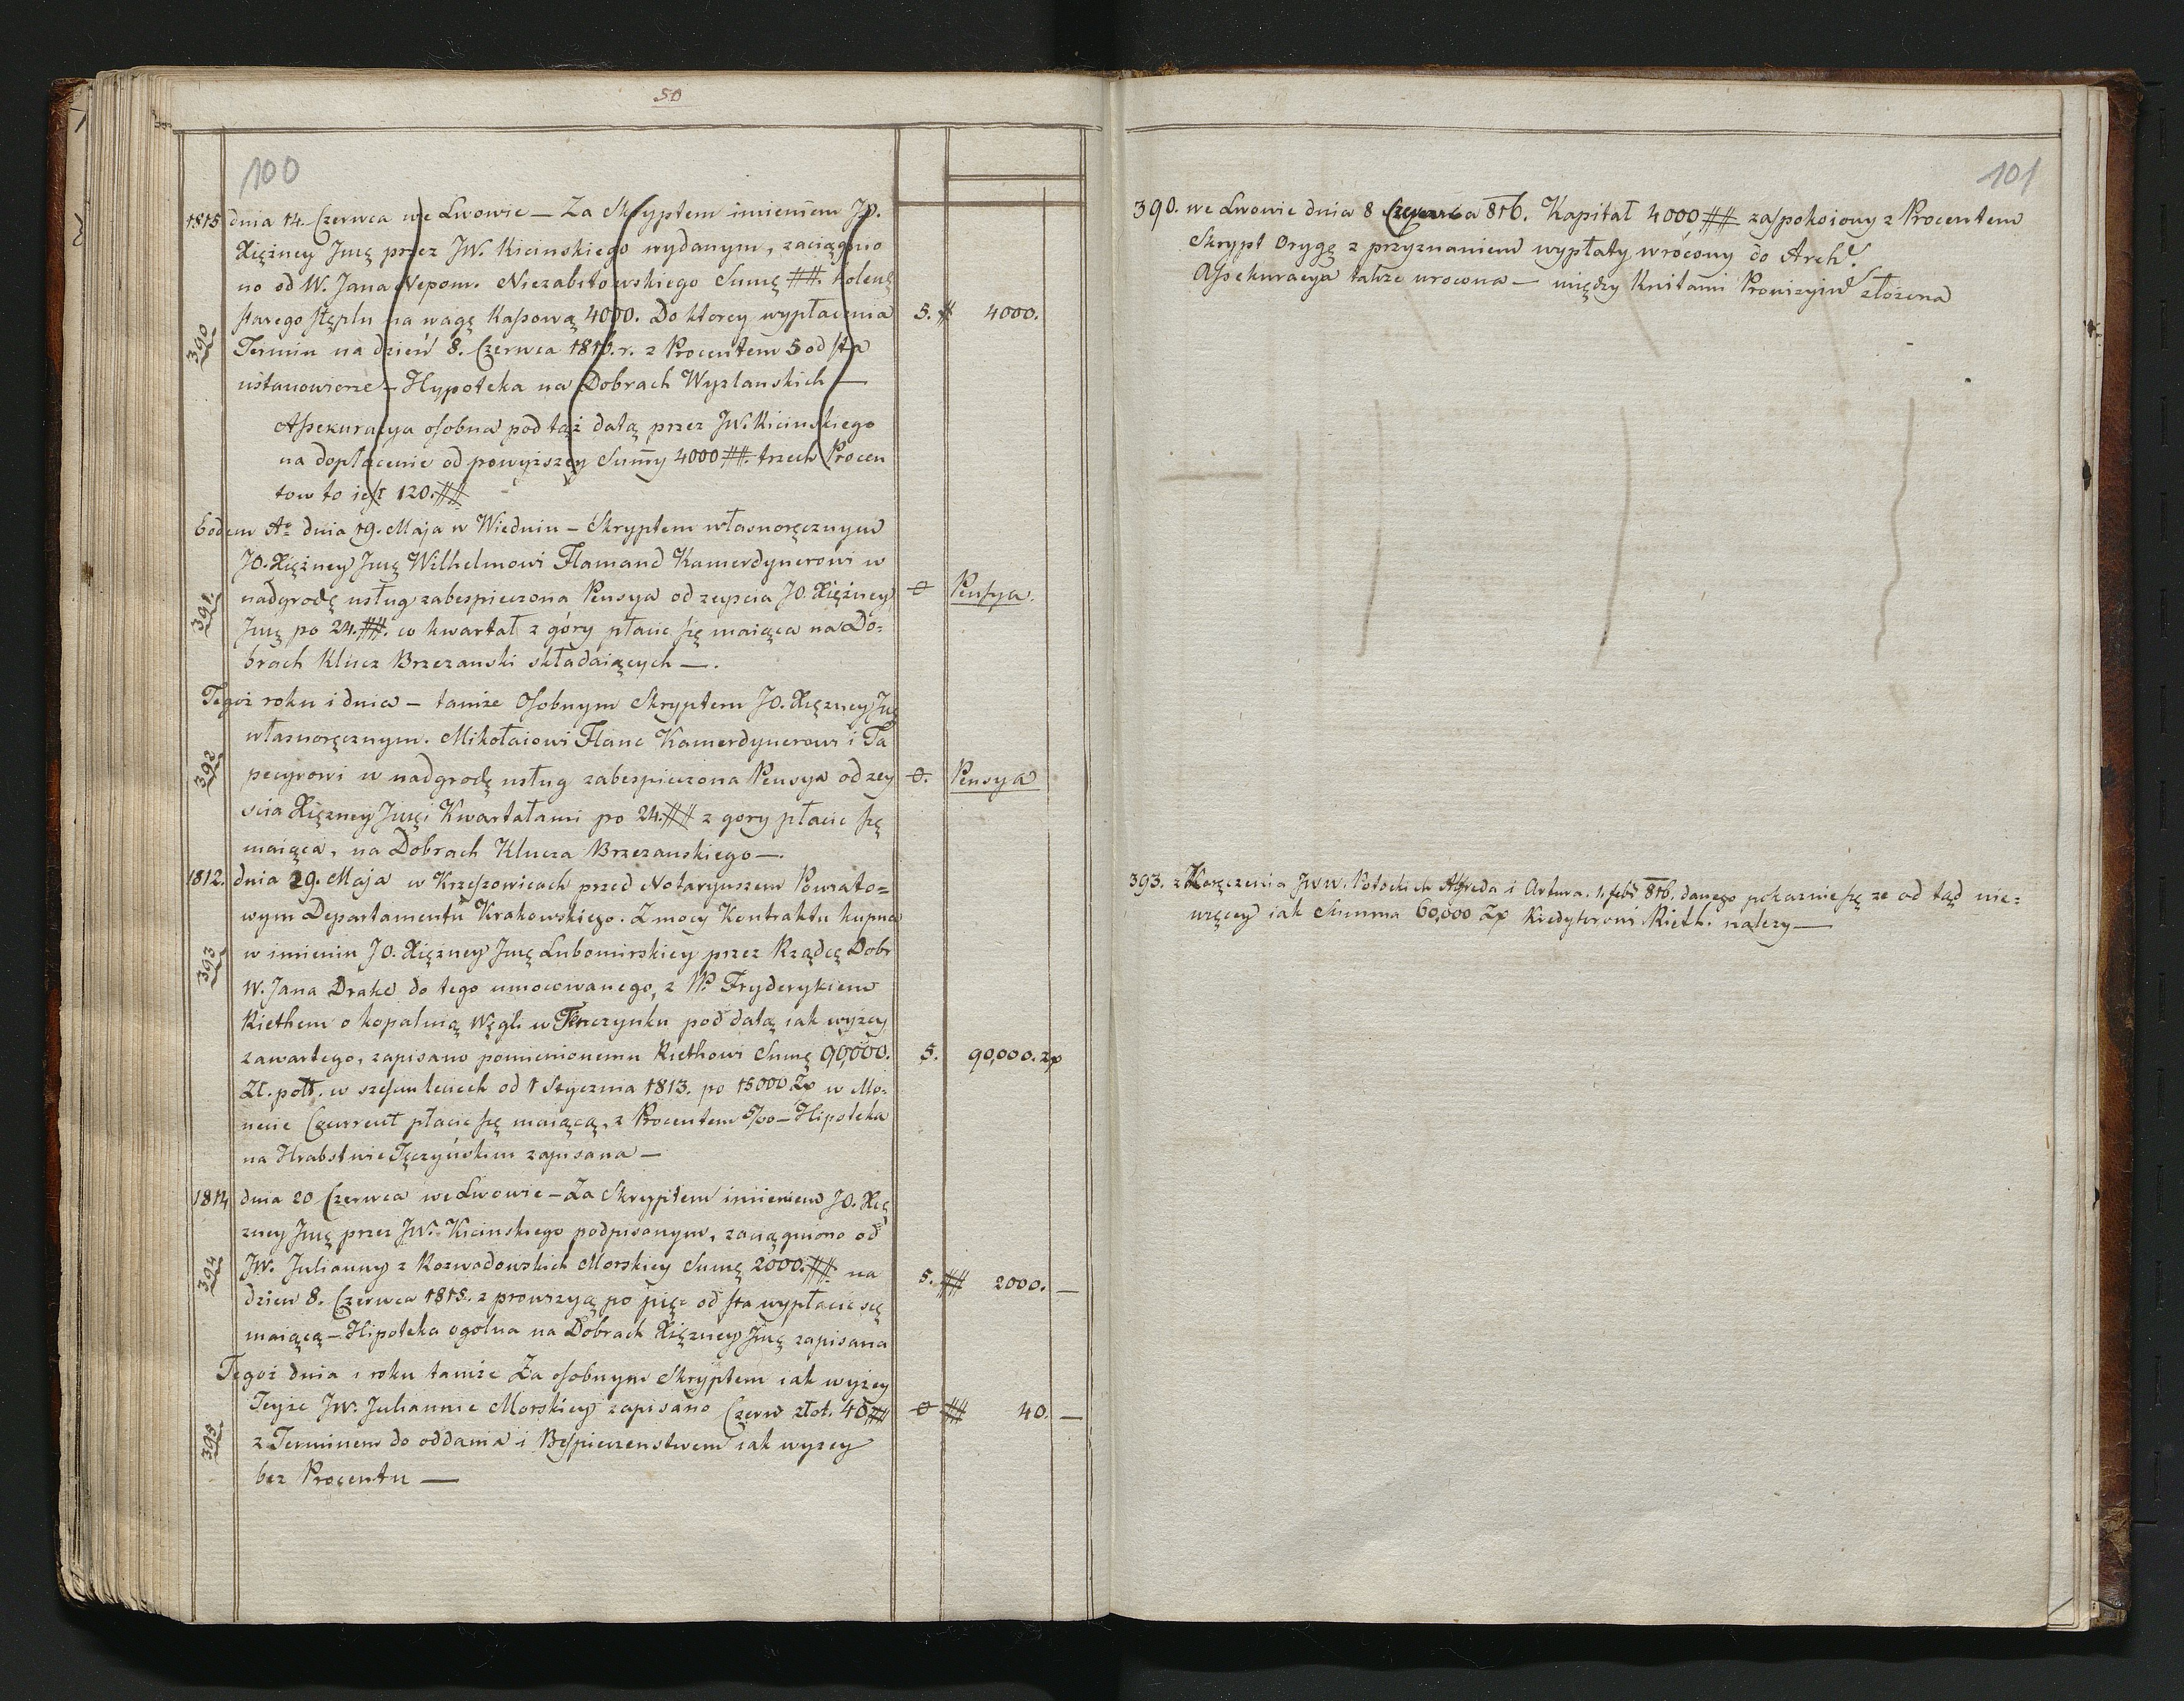 50
100
1815 dnia 14. Czerwca we Lwowie — Za Skryptem imieniem JO.
Xiężney Jmę przez JW. Kicinskiego wydanym, zaciągnio
no od W. Jana Nepom. Niezabitowskiego Sumę ##. holend
starego stęplu na wagę Kassową 4000. Do ktorey wypłacenia 5. # 4000.
390 Termin na dzień 8. Czerwca 1816. r. z Procentem 5 od sta
ustanowione — Hypoteka na Dobrach Wyzlanskich —
Assekuracya osobna pod tąż datą przez JW. Kicinskiego
na dopłacenie od powyższey Sumy 4000 ##. trzech Procen
tow to iest 120. ##
Eodem Ao dnia 19. Maja w Wiedniu — Skryptem własnoręcznym
JO. Xiężney Jmę Wilhelmowi Flamand Kamerdynerowi w
391. nadgrodę usług zabespieczona Pensya od zeyscia JO. Xiężney 0 Pensya.
Jmę po 24. ##. w kwartał z góry płacic się maiąca na Do=
brach Klucz Brzezanski składaiących —.
Tegoż roku i dnia — tamże Osobnym Skryptem JO. Xiężney Jmę
własnoręcznym. Mikołaiowi Flanc Kamerdynerowi i Ta
392 pecyrowi w nadgrodę usług zabespieczona Pensya od zey 0. Pensya
scia Xiężney Jmęi Kwartałami po 24. ## z gory płacic się
maiąca, na Dobrach Klucza Brzezanskiego —.
1812. dnia 29. Maja w Krzeszowicach przed Notaryuszem Powiato=
wym Departamentu Krakowskiego. Z mocy Kontraktu kupna
393 w imieniu JO. Xiężney Jmę Lubomirskiey przez Rządcę Dobr
W. Jana Drake do tego umocowanego, z W. Fryderykiem
Riethem o kopalnią Węgli w Tenczynku pod datą iak wyżey
zawartego, zapisano pomienionemu Riethowi Sumę 90,000. 5. 90,000. zp
Zł. pols. w sześciu leciech od 1 Stycznia 1813. po 15000 Zp w Mo=
necie Courrent płacic się maiącą, z Procentem 5/100 — Hipoteka
na Hrabstwie Tęczyńskim zapisana —
1814 dnia 20 Czerwca we Lwowie — Za Skryptem imieniem JO. Xię
żney Jmę przez JW. Kicinskiego podpisanym, zaciągniono od
394 JW. Julianny z Rozwadowskich Morskiey Sumę 2000. ## na 5. ## 2000. —
dzien 8. Czerwca 1815. z prowizyą po pię= od sta wypłacic się
maiącą — Hipoteka ogolna na Dobrach Xiężney Jmę zapisana
Tegoż dnia i roku tamże Za osobnym Skryptem iak wyżey
Teyże JW. Juliannie Morskiey zapisano Czerw złot. 40 ## 0 ## 40. —
395 z Terminem do oddania i Bespieczenstwem iak wyżey
bez Procentu —
101
390. we Lwowie dnia 8 Czerwca 816. Kapitał 4000 ## zaspokoiony z Procentem
Skrypt Orygę z przyznaniem wypłaty wrócony do Arch.
Assekuracya także wrocona — między Kwitami Prowizyiw złożona
393. z Zaręczenia JWW. Potockich Alfreda i Artura. 1. feb. 816. danego pokazuie się ze od tąd nie=
więcey iak Summa 60,000 Zp Kredytorowi Rieth. należy —